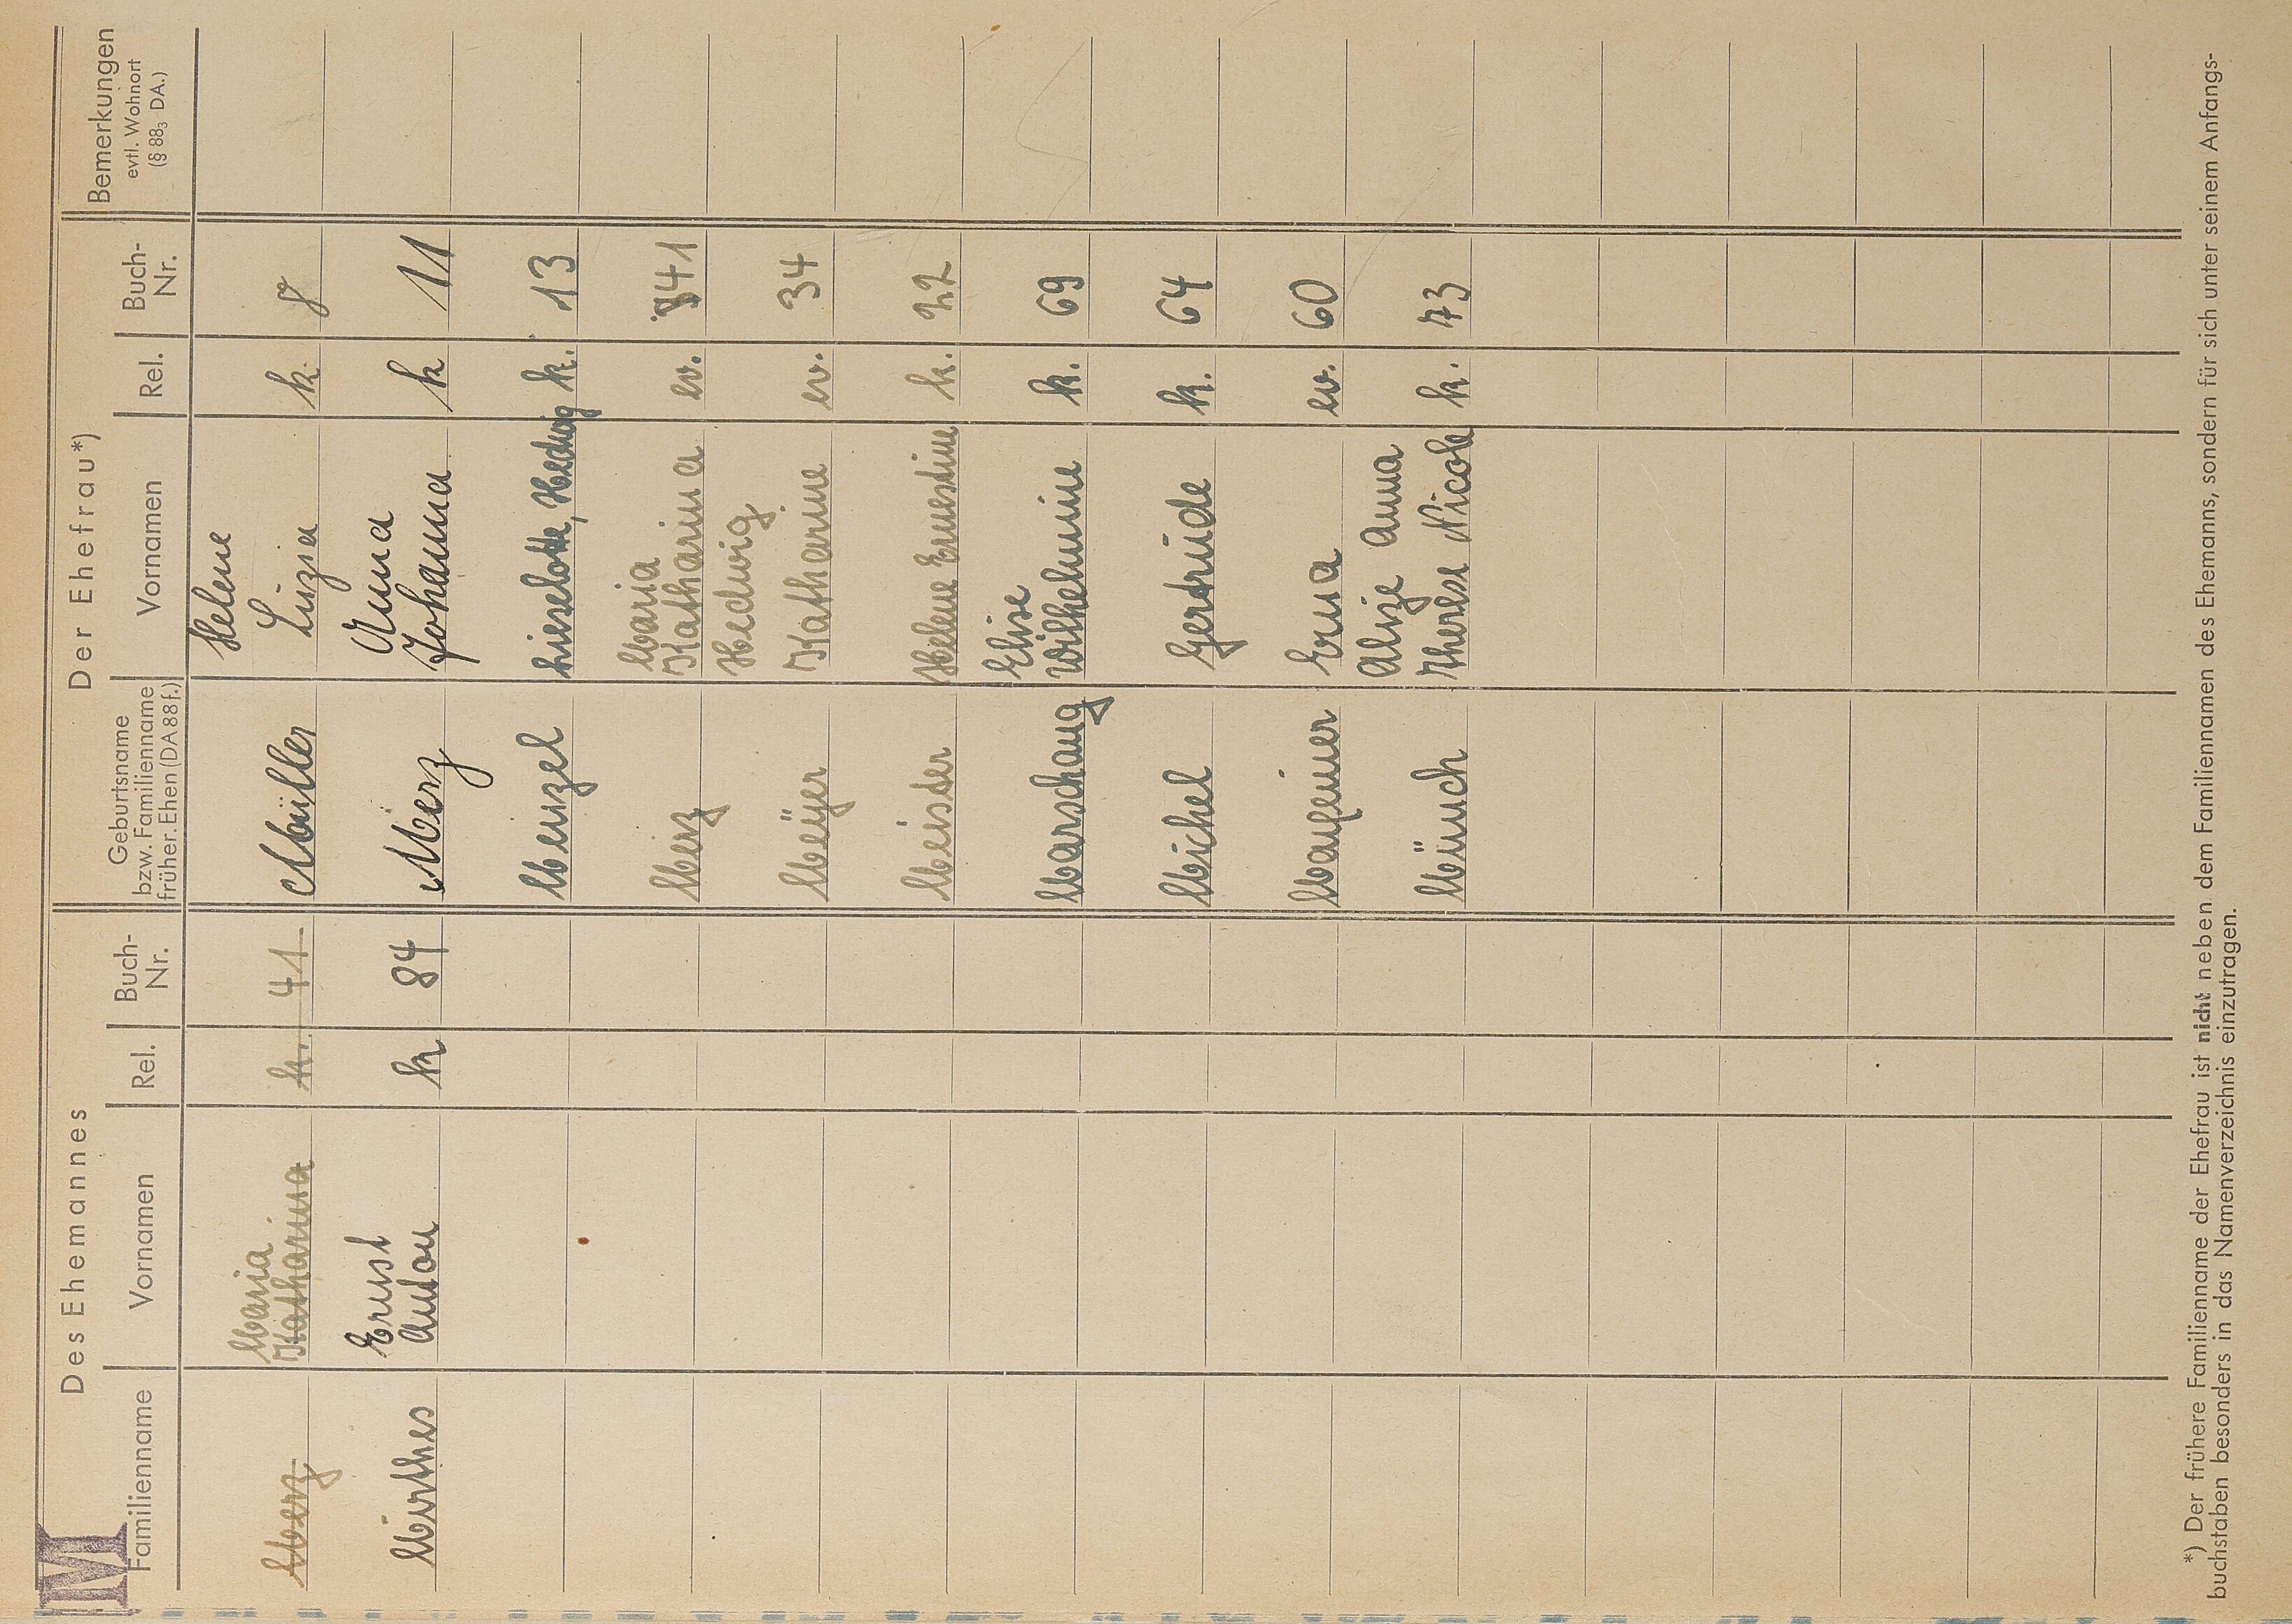 M
Des Ehemannes
Der Ehefrau*)
Bemerkungen
evtl. Wohnort
(§ 88₃ DA.)
Familienname
Vornamen
Rel.
Buch-
Nr.
Geburtsname
bzw. Familienname
früher. Ehen (DA 88 f.)
Vornamen
Rel.
Buch-
Nr.
Merz
Maria
Katharina
k.
41
Müller
Helene
Luzia
k.
8
Mirthes
Ernst
Anton
k
84
Merz
Anna
Johanna
k
11
Menzel
Lieselotte, Hedwig
k.
13
Merz
Maria
Katharina
ev.
41
Meÿer
Hedwig
Katharine
ev.
34
Meister
Helene Ernestine
k.
22
Marschang
Elise
Wilhelmine
k.
69
Michel
Gertrude
k.
64
Erna
ev.
60
Münch
Alize Anna
Therese Nicole
k.
73
*) Der frühere Familienname der Ehefrau ist nicht neben dem Familiennamen des Ehemanns, sondern für sich unter seinem Anfangs-
buchstaben besonders in das Namenverzeichnis einzutragen.